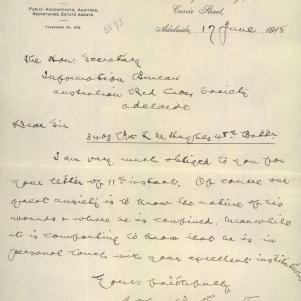 PUBLIC ACCOUNTANTS, AUDITORS,
SECRETARIES, ESTATE AGENTS.
Currie Street,
5573
Adelaide, 17 June 1918
The Hon. Secretary
Information Bureau
Australian Red Cross Society
Adelaide
Dear Sir
3403 Pte L M Hughes 48th Battn.
I am very much obliged to you for
your letter of 11th instant. Of course our
great anxiety is to know the nature of his
wounds & where he is confined. Meanwhile
it is comforting to know that he is in
personal touch with your excellent institution
Yours faithfully